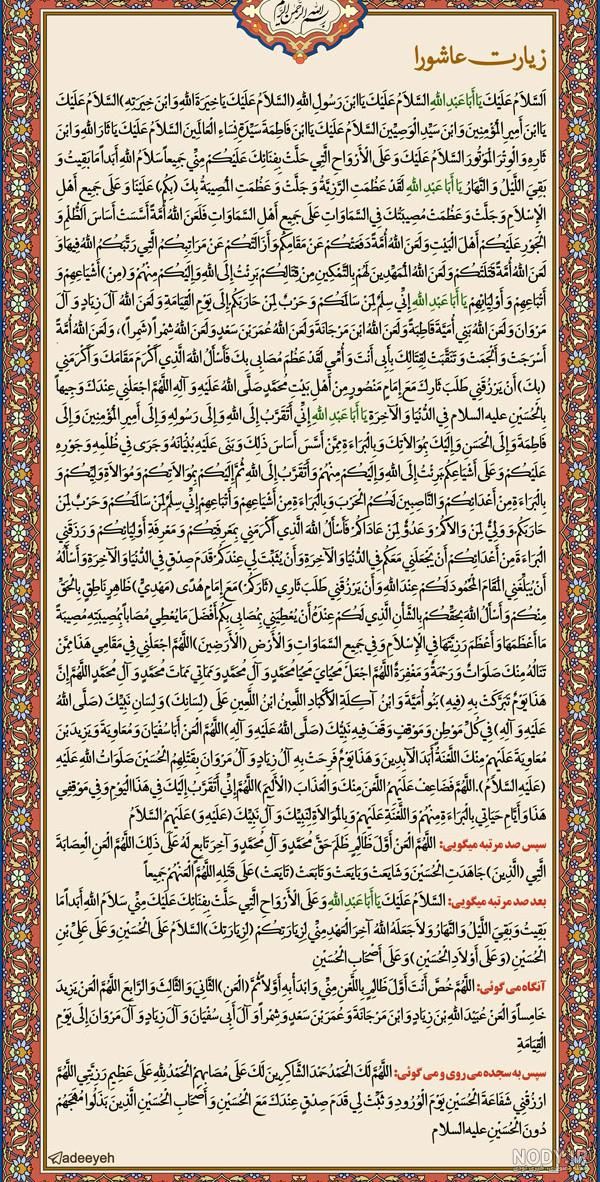 بسم الله الرحمن الرحیم
زیارت عاشورا
اَلسَّلامُ عَلَيْكَ يَا أَبَا عَبْدِ اللهِ السَّلامُ عَلَيْكَ يَا ابْنَ رَسُولِ اللهِ (السَّلامُ عَلَيْكَ يَا خِيَرَةَ اللهِ وَابْنَ خِيَرَتِهِ) السَّلامُ عَلَيْكَ
يَا ابْنَ أَمِيرِ الْمُؤْمِنِينَ وَابْنَ سَيِّدِ الْوَصِيِّينَ السَّلامُ عَلَيْكَ يَا ابْنَ فَاطِمَةَ سَيِّدَةِ نِسَاءِ الْعَالَمِينَ السَّلامُ عَلَيْكَ يَا ثَارَ اللهِ وَابْنَ
ثَارِهِ وَالْوِتْرَ الْمَوْتُورَ السَّلامُ عَلَيْكَ وَعَلَى الْأَرْوَاحِ الَّتِي حَلَّتْ بِفِنَائِكَ عَلَيْكُمْ مِنِّي جَمِيعاً سَلامُ اللهِ أَبَداً مَا بَقِيتُ وَ
بَقِيَ اللَّيْلُ وَالنَّهَارُ يَا أَبَا عَبْدِ اللهِ لَقَدْ عَظُمَتِ الرَّزِيَّةُ وَجَلَّتْ وَعَظُمَتِ الْمُصِيبَةُ بِكَ (بِكُمْ) عَلَيْنَا وَعَلَى جَمِيعِ أَهْلِ
الْإِسْلامِ وَجَلَّتْ وَعَظُمَتْ مُصِيبَتُكَ فِي السَّمَاوَاتِ عَلَى جَمِيعِ أَهْلِ السَّمَاوَاتِ فَلَعَنَ اللهُ أُمَّةً أَسَّسَتْ أَسَاسَ الظُّلْمِ وَ
الْجَوْرِ عَلَيْكُمْ أَهْلَ الْبَيْتِ وَلَعَنَ اللهُ أُمَّةً دَفَعَتْكُمْ عَنْ مَقَامِكُمْ وَأَزَالَتْكُمْ عَنْ مَرَاتِبِكُمُ الَّتِي رَتَّبَكُمُ اللهُ فِيهَا وَ
لَعَنَ اللهُ أُمَّةً قَتَلَتْكُمْ وَلَعَنَ اللهُ الْمُمَهِّدِينَ لَهُمْ بِالتَّمْكِينِ مِنْ قِتَالِكُمْ بَرِئْتُ إِلَى اللهِ وَإِلَيْكُمْ مِنْهُمْ وَ (مِنْ) أَشْيَاعِهِمْ وَ
أَتْبَاعِهِمْ وَأَوْلِيَائِهِمْ يَا أَبَا عَبْدِ اللهِ إِنِّي سِلْمٌ لِمَنْ سَالَمَكُمْ وَحَرْبٌ لِمَنْ حَارَبَكُمْ إِلَى يَوْمِ الْقِيَامَةِ وَلَعَنَ اللهُ آلَ زِيَادٍ وَآلَ
مَرْوَانَ وَلَعَنَ اللهُ بَنِي أُمَيَّةَ قَاطِبَةً وَلَعَنَ اللهُ ابْنَ مَرْجَانَةَ وَلَعَنَ اللهُ عُمَرَ بْنَ سَعْدٍ وَلَعَنَ اللهُ شِمْراً (شَمِراً)، وَلَعَنَ اللهُ أُمَّةً
أَسْرَجَتْ وَأَلْجَمَتْ وَتَنَقَّبَتْ لِقِتَالِكَ بِأَبِي أَنْتَ وَأُمِّي لَقَدْ عَظُمَ مُصَابِي بِكَ فَأَسْأَلُ اللهَ الَّذِي أَكْرَمَ مَقَامَكَ وَأَكْرَمَنِي
(بِكَ) أَنْ يَرْزُقَنِي طَلَبَ ثَارِكَ مَعَ إِمَامٍ مَنْصُورٍ مِنْ أَهْلِ بَيْتِ مُحَمَّدٍ صَلَّى اللهُ عَلَيْهِ وَآلِهِ اللَّهُمَّ اجْعَلْنِي عِنْدَكَ وَجِيهاً
بِالْحُسَيْنِ عليه السلام فِي الدُّنْيَا وَالْآخِرَةِ يَا أَبَا عَبْدِ اللهِ إِنِّي أَتَقَرَّبُ إِلَى اللهِ وَإِلَى رَسُولِهِ وَإِلَى أَمِيرِ الْمُؤْمِنِينَ وَإِلَى
فَاطِمَةَ وَإِلَى الْحَسَنِ وَإِلَيْكَ بِمُوَالاتِكَ وَبِالْبَرَاءَةِ مِمَّنْ أَسَّسَ أَسَاسَ ذَلِكَ وَبَنَى عَلَيْهِ بُنْيَانَهُ وَجَرَى فِي ظُلْمِهِ وَجَوْرِهِ
عَلَيْكُمْ وَعَلَى أَشْيَاعِكُمْ بَرِئْتُ إِلَى اللهِ وَإِلَيْكُمْ مِنْهُمْ وَأَتَقَرَّبُ إِلَى اللهِ ثُمَّ إِلَيْكُمْ بِمُوَالاتِكُمْ وَمُوَالاةِ وَلِيِّكُمْ وَ
بِالْبَرَاءَةِ مِنْ أَعْدَائِكُمْ وَالنَّاصِبِينَ لَكُمُ الْحَرْبَ وَبِالْبَرَاءَةِ مِنْ أَشْيَاعِهِمْ وَأَتْبَاعِهِمْ إِنِّي سِلْمٌ لِمَنْ سَالَمَكُمْ وَحَرْبٌ لِمَنْ
حَارَبَكُمْ وَوَلِيٌّ لِمَنْ وَالاكُمْ وَعَدُوٌّ لِمَنْ عَادَاكُمْ فَأَسْأَلُ اللهَ الَّذِي أَكْرَمَنِي بِمَعْرِفَتِكُمْ وَمَعْرِفَةِ أَوْلِيَائِكُمْ وَرَزَقَنِي
الْبَرَاءَةَ مِنْ أَعْدَائِكُمْ أَنْ يَجْعَلَنِي مَعَكُمْ فِي الدُّنْيَا وَالْآخِرَةِ وَأَنْ يُثَبِّتَ لِي عِنْدَكُمْ قَدَمَ صِدْقٍ فِي الدُّنْيَا وَالْآخِرَةِ وَأَسْأَلُهُ
أَنْ يُبَلِّغَنِي الْمَقَامَ الْمَحْمُودَ لَكُمْ عِنْدَ اللهِ وَأَنْ يَرْزُقَنِي طَلَبَ ثَارِي (ثَارِكُمْ) مَعَ إِمَامٍ هُدًى (مَهْدِيٍّ) ظَاهِرٍ نَاطِقٍ بِالْحَقِّ
مِنْكُمْ وَأَسْأَلُ اللهَ بِحَقِّكُمْ وَبِالشَّأْنِ الَّذِي لَكُمْ عِنْدَهُ أَنْ يُعْطِيَنِي بِمُصَابِي بِكُمْ أَفْضَلَ مَا يُعْطِي مُصَاباً بِمُصِيبَتِهِ مُصِيبَةً
مَا أَعْظَمَهَا وَأَعْظَمَ رَزِيَّتَهَا فِي الْإِسْلامِ وَفِي جَمِيعِ السَّمَاوَاتِ وَالْأَرْضِ (الْأَرَضِينَ) اللَّهُمَّ اجْعَلْنِي فِي مَقَامِي هَذَا مِمَّنْ
تَنَالُهُ مِنْكَ صَلَوَاتٌ وَرَحْمَةٌ وَمَغْفِرَةٌ اللَّهُمَّ اجْعَلْ مَحْيَايَ مَحْيَا مُحَمَّدٍ وَآلِ مُحَمَّدٍ وَمَمَاتِي مَمَاتَ مُحَمَّدٍ وَآلِ مُحَمَّدٍ اللَّهُمَّ إِنَّ
هَذَا يَوْمٌ تَبَرَّكَتْ بِهِ (فِيهِ) بَنُو أُمَيَّةَ وَابْنُ آكِلَةِ الْأَكْبَادِ اللَّعِينُ ابْنُ اللَّعِينِ عَلَى (لِسَانِكَ) وَلِسَانِ نَبِيِّكَ (صَلَّى اللهُ
عَلَيْهِ وَآلِهِ) فِي كُلِّ مَوْطِنٍ وَمَوْقِفٍ وَقَفَ فِيهِ نَبِيُّكَ (صَلَّى اللهُ عَلَيْهِ وَآلِهِ) اللَّهُمَّ الْعَنْ أَبَا سُفْيَانَ وَمُعَاوِيَةَ وَيَزِيدَ بْنَ
مُعَاوِيَةَ عَلَيْهِمْ مِنْكَ اللَّعْنَةُ أَبَدَ الْآبِدِينَ وَهَذَا يَوْمٌ فَرِحَتْ بِهِ آلُ زِيَادٍ وَآلُ مَرْوَانَ بِقَتْلِهِمُ الْحُسَيْنَ صَلَوَاتُ اللهِ عَلَيْهِ
(عَلَيْهِ السَّلامُ). اللَّهُمَّ فَضَاعِفْ عَلَيْهِمُ اللَّعْنَ مِنْكَ وَالْعَذَابَ (الْأَلِيمَ) اللَّهُمَّ إِنِّي أَتَقَرَّبُ إِلَيْكَ فِي هَذَا الْيَوْمِ وَفِي مَوْقِفِي
هَذَا وَأَيَّامِ حَيَاتِي بِالْبَرَاءَةِ مِنْهُمْ وَاللَّعْنَةِ عَلَيْهِمْ وَبِالْمُوَالاةِ لِنَبِيِّكَ وَآلِ نَبِيِّكَ (عَلَيْهِ وَ) عَلَيْهِمُ السَّلامُ
سپس صد مرتبه میگویی: اللَّهُمَّ الْعَنْ أَوَّلَ ظَالِمٍ ظَلَمَ حَقَّ مُحَمَّدٍ وَآلِ مُحَمَّدٍ وَآخِرَ تَابِعٍ لَهُ عَلَى ذَلِكَ اللَّهُمَّ الْعَنِ الْعِصَابَةَ
الَّتِي (الَّذِينَ) جَاهَدَتِ الْحُسَيْنَ وَشَايَعَتْ وَبَايَعَتْ وَتَابَعَتْ (تَايَعَتْ) عَلَى قَتْلِهِ اللَّهُمَّ الْعَنْهُمْ جَمِيعاً
بعد صد مرتبه میگویی: السَّلامُ عَلَيْكَ يَا أَبَا عَبْدِ اللهِ وَعَلَى الْأَرْوَاحِ الَّتِي حَلَّتْ بِفِنَائِكَ عَلَيْكَ مِنِّي سَلامُ اللهِ أَبَداً مَا
بَقِيتُ وَبَقِيَ اللَّيْلُ وَالنَّهَارُ وَلا جَعَلَهُ اللهُ آخِرَ الْعَهْدِ مِنِّي لِزِيَارَتِكُمْ (لِزِيَارَتِكَ) السَّلامُ عَلَى الْحُسَيْنِ وَعَلَى عَلِيِّ بْنِ
الْحُسَيْنِ (وَعَلَى أَوْلادِ الْحُسَيْنِ) وَعَلَى أَصْحَابِ الْحُسَيْنِ
آنگاه می گوئی: اللَّهُمَّ خُصَّ أَنْتَ أَوَّلَ ظَالِمٍ بِاللَّعْنِ مِنِّي وَابْدَأْ بِهِ أَوَّلاً ثُمَّ (الْعَنِ) الثَّانِيَ وَالثَّالِثَ وَالرَّابِعَ اللَّهُمَّ الْعَنْ يَزِيدَ
خَامِساً وَالْعَنْ عُبَيْدَ اللهِ بْنَ زِيَادٍ وَابْنَ مَرْجَانَةَ وَعُمَرَ بْنَ سَعْدٍ وَشِمْراً وَآلَ أَبِي سُفْيَانَ وَآلَ زِيَادٍ وَآلَ مَرْوَانَ إِلَى يَوْمِ
الْقِيَامَةِ
سپس به سجده می روی و می گوئی: اللَّهُمَّ لَكَ الْحَمْدُ حَمْدَ الشَّاكِرِينَ لَكَ عَلَى مُصَابِهِمُ الْحَمْدُ لِلَّهِ عَلَى عَظِيمِ رَزِيَّتِي اللَّهُمَّ
ارْزُقْنِي شَفَاعَةَ الْحُسَيْنِ يَوْمَ الْوُرُودِ وَثَبِّتْ لِي قَدَمَ صِدْقٍ عِنْدَكَ مَعَ الْحُسَيْنِ وَأَصْحَابِ الْحُسَيْنِ الَّذِينَ بَذَلُوا مُهَجَهُمْ
دُونَ الْحُسَيْنِ عليه السلام
adeeyeh
NODY.IR